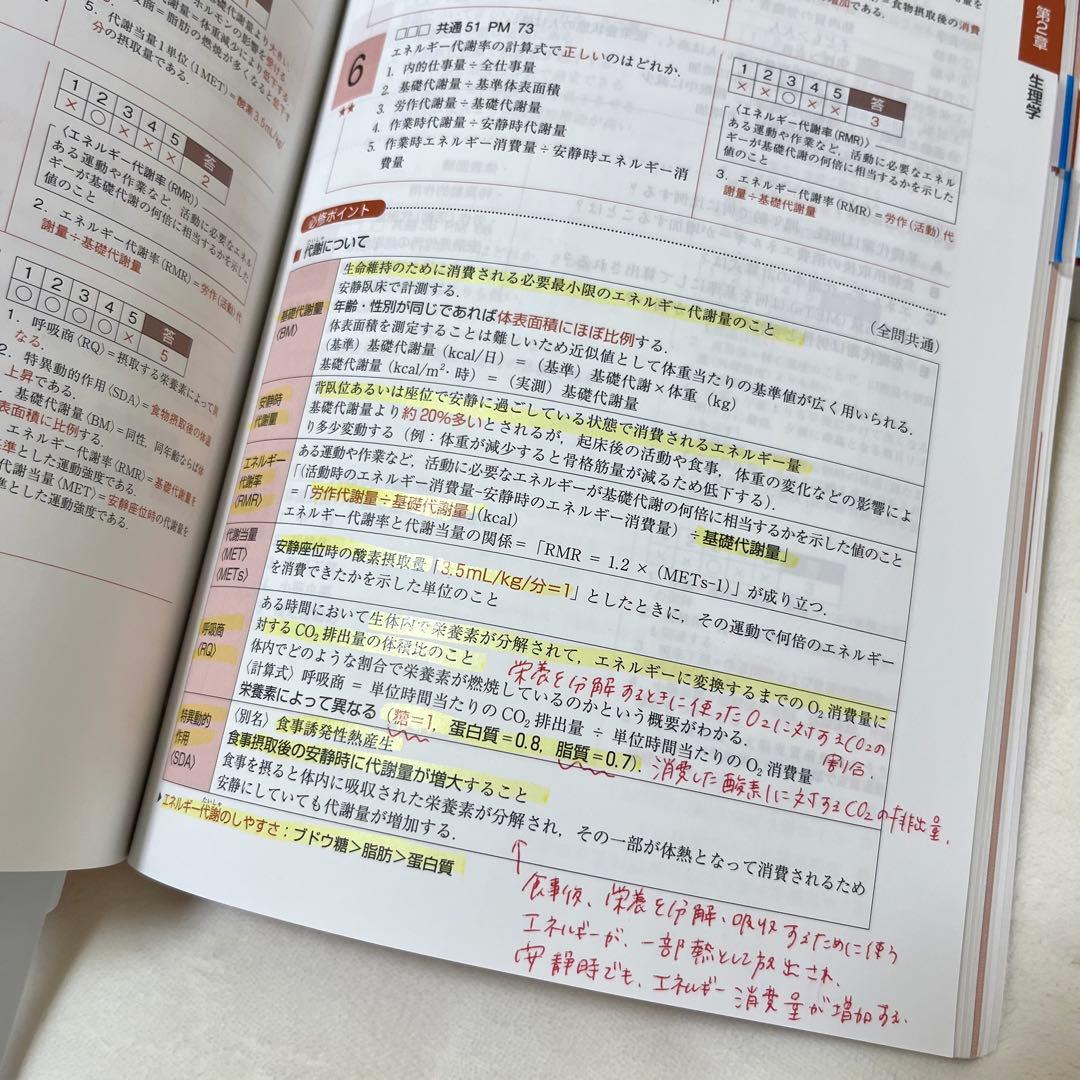 5. 代謝当量1単位(1MET)=酸素3.5mL/kg/
分の摂取量である.
1 2 3 4 5 答
× ○ × × × 2
〈エネルギー代謝率(RMR)〉
ある運動や作業など,活動に必要なエネル
ギーが基礎代謝の何倍に相当するかを示した
値のこと
2. エネルギー代謝率(RMR)=労作(活動)代
謝量÷基礎代謝量
1 2 3 4 5 答
○ ○ ○ ○ × 5
1. 呼吸商(RQ)=摂取する栄養素によって異
なる.
2. 特異動的作用(SDA)=食物摂取後の体温
上昇である.
基礎代謝量(BM)=同性,同年齢ならば体
表面積に比例する.
エネルギー代謝率(RMR)=基礎代謝量を
基準とした運動強度である.
代謝当量〈MET〉=安静座位時の代謝量を
基準とした運動強度である.
第2章
生理学
6
★★
□□□ 共通51 PM 73
エネルギー代謝率の計算式で正しいのはどれか.
1. 内的仕事量÷全仕事量
2. 基礎代謝量÷基準体表面積
3. 労作代謝量÷基礎代謝量
4. 作業時代謝量÷安静時代謝量
5. 作業時エネルギー消費量÷安静時エネルギー消
費量
1 2 3 4 5 答
× × ○ × × 3
〈エネルギー代謝率(RMR)〉
ある運動や作業など,活動に必要なエネル
ギーが基礎代謝の何倍に相当するかを示した
値のこと
3. エネルギー代謝率(RMR)=労作(活動)代
謝量÷基礎代謝量
必修ポイント
■代謝について
(全問共通)
基礎代謝量
〈BM〉
生命維持のために消費される必要最小限のエネルギー代謝量のこと
安静臥床で計測する.
年齢・性別が同じであれば体表面積にほぼ比例する.
体表面積を測定することは難しいため近似値として体重当たりの基準値が広く用いられる.
(基準)基礎代謝量(kcal/日)=(基準)基礎代謝×体重(kg)
基礎代謝量(kcal/m²・時)=(実測)基礎代謝量
安静時
代謝量
背臥位あるいは座位で安静に過ごしている状態で消費されるエネルギー量
基礎代謝量より約20%多いとされるが,起床後の活動や食事,体重の変化などの影響によ
り多少変動する(例:体重が減少すると骨格筋量が減るため低下する).
エネルギー
代謝率
〈RMR〉
ある運動や作業など,活動に必要なエネルギーが基礎代謝の何倍に相当するかを示した値のこと
「(活動時のエネルギー消費量-安静時のエネルギー消費量)÷基礎代謝量」
=「労作代謝量÷基礎代謝量」(kcal)
エネルギー代謝率と代謝当量の関係=「RMR = 1.2 ×(METs-1)」が成り立つ.
代謝当量
〈MET〉
〈METs〉
安静座位時の酸素摂取量「3.5mL/kg/分=1」としたときに,その運動で何倍のエネルギー
を消費できたかを示した単位のこと
呼吸商
〈RQ〉
ある時間において生体内で栄養素が分解されて,エネルギーに変換するまでのO₂消費量に
対するCO₂排出量の体積比のこと
栄養を分解するときに使ったO₂に対するCO₂の
割合.
体内でどのような割合で栄養素が燃焼しているのかという概要がわかる.
〈計算式〉呼吸商 = 単位時間当たりのCO₂排出量 ÷ 単位時間当たりのO₂消費量
栄養素によって異なる(糖=1,蛋白質=0.8,脂質=0.7).
消費した酸素1に対するCO₂の排出量.
特異動的
作用
〈SDA〉
〈別名〉食事誘発性熱産生
食事摂取後の安静時に代謝量が増大すること
食事を摂ると体内に吸収された栄養素が分解され,その一部が体熱となって消費されるため
安静にしていても代謝量が増加する.
▶エネルギー代謝のしやすさ:ブドウ糖>脂肪>蛋白質
食事後、栄養を分解、吸収するために使う
エネルギーが、一部熱として放出され、
安静時でも、エネルギー消費量が増加する.